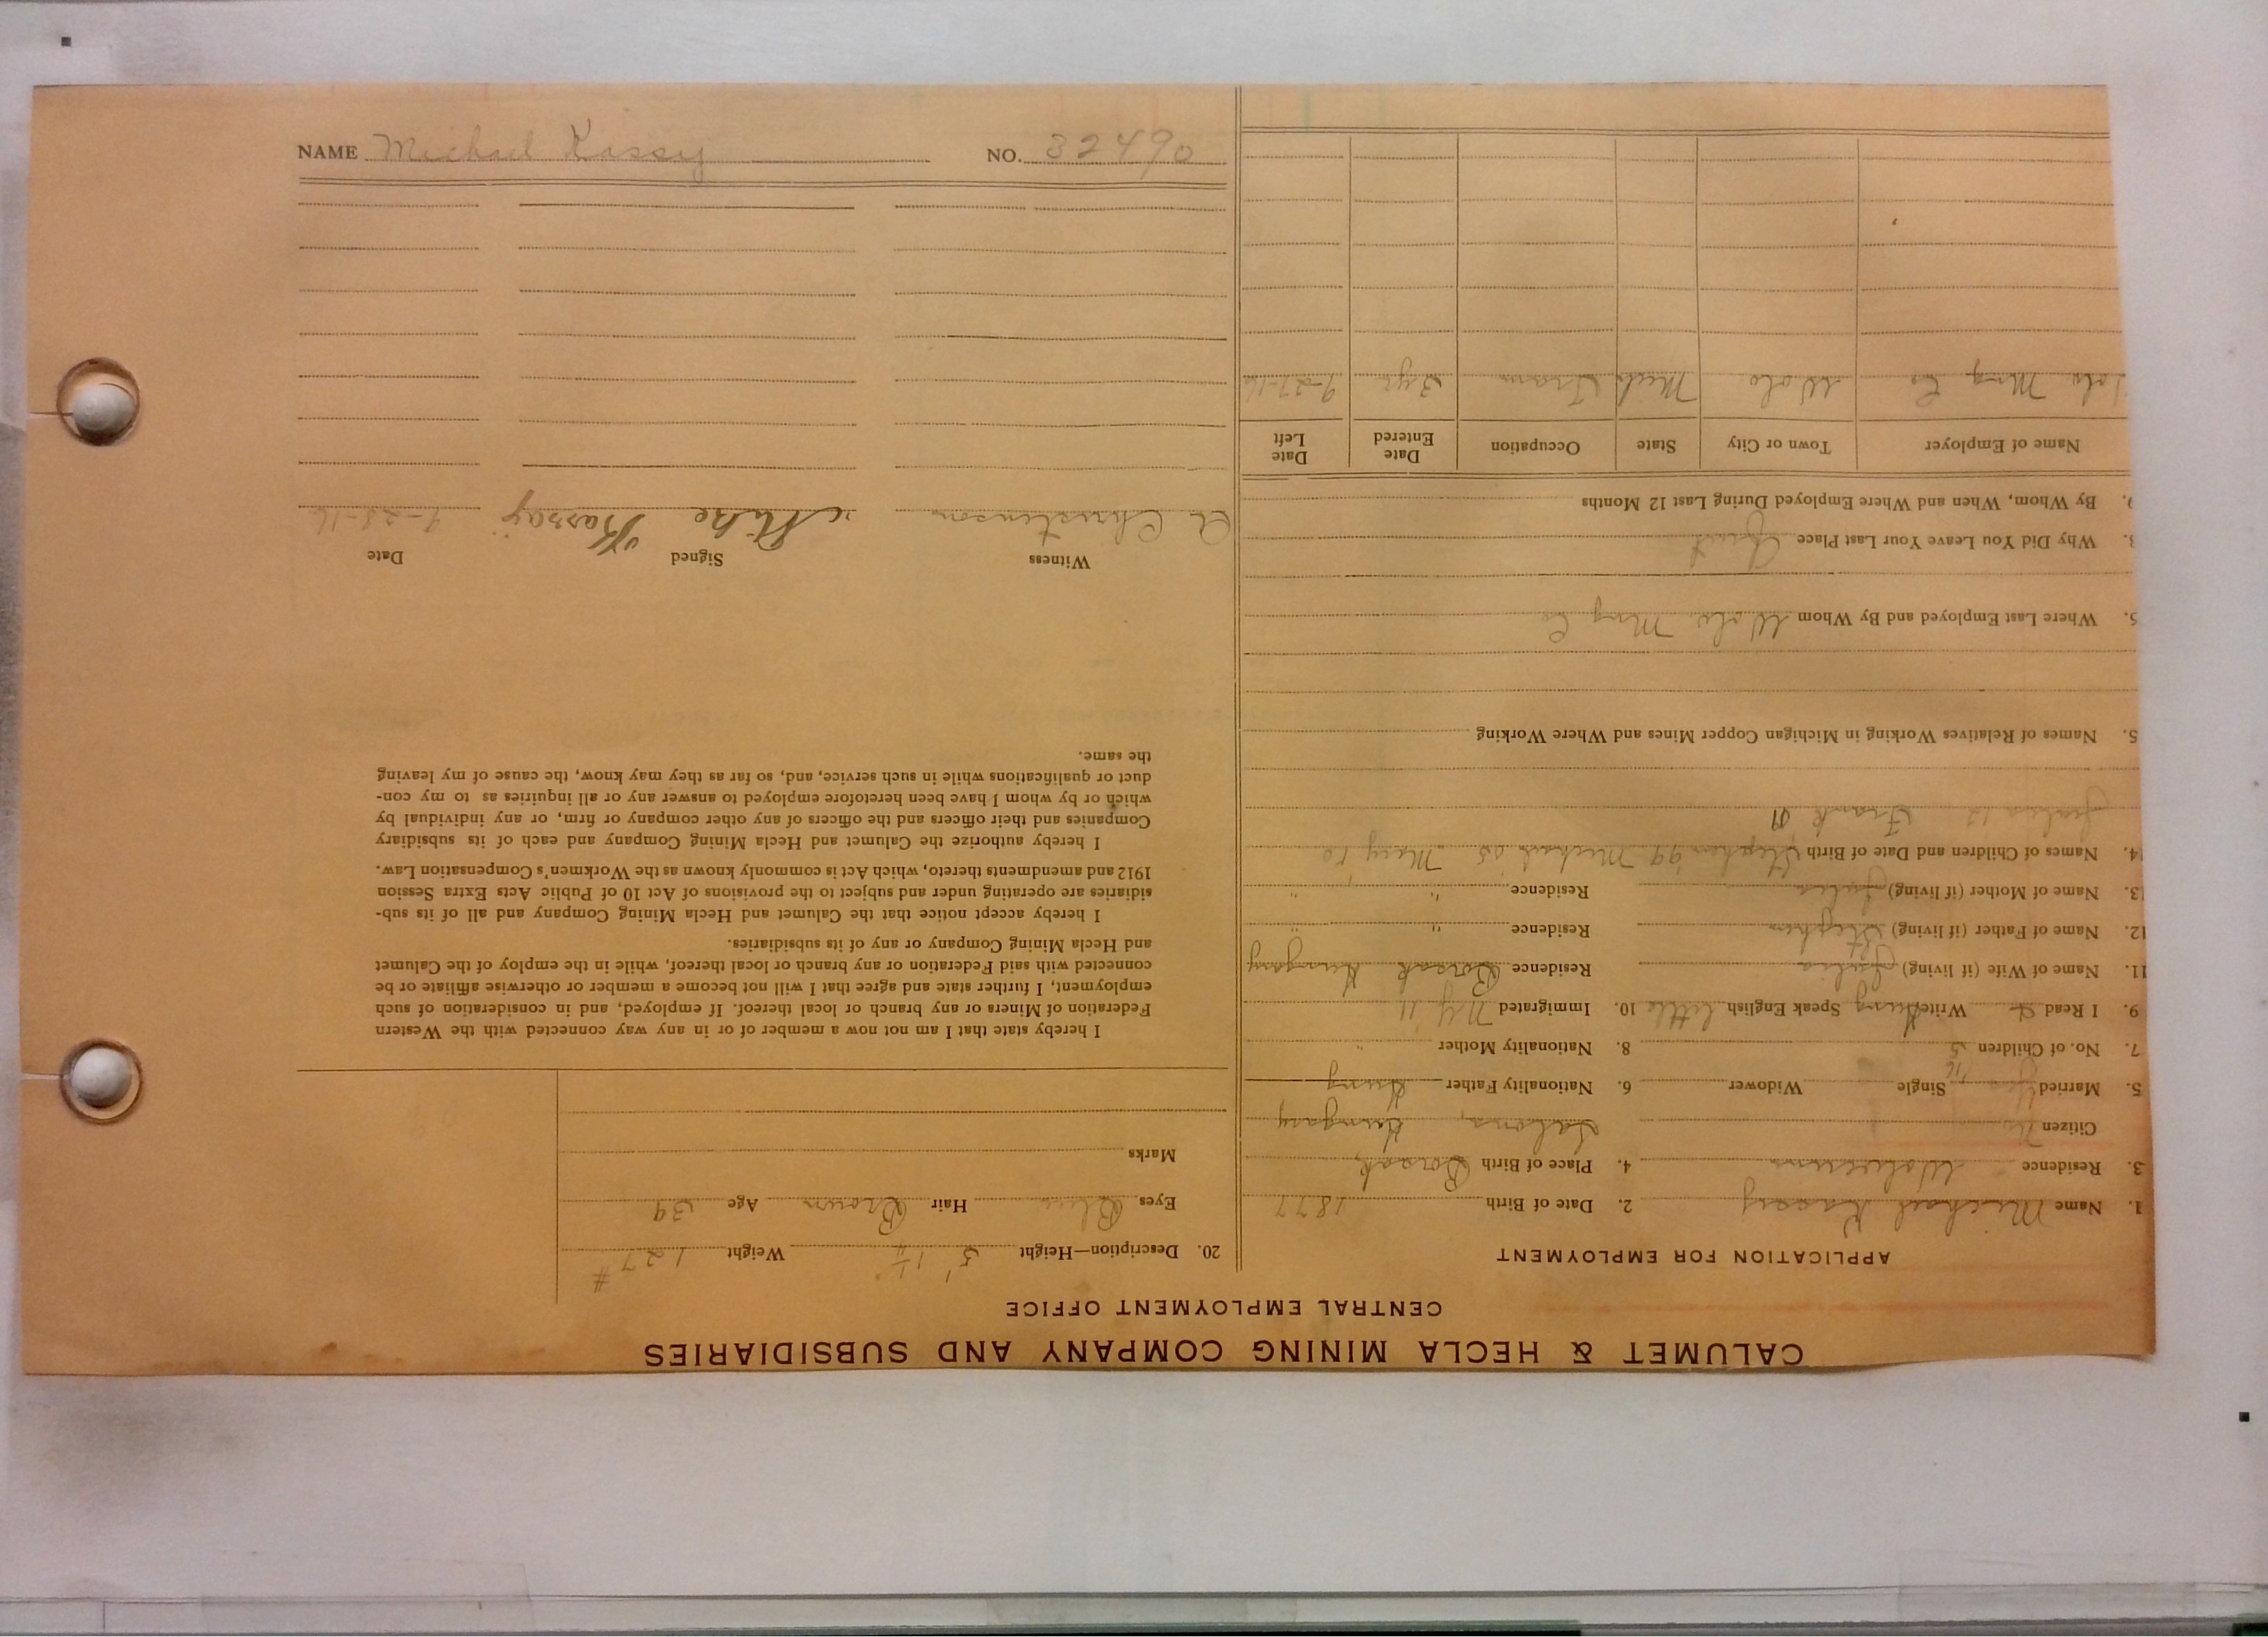 NAME Michael Kassy NO. 32490
CALUMET & HECLA MINING COMPANY AND SUBSIDIARIES
CENTRAL EMPLOYMENT OFFICE
APPLICATION FOR EMPLOYMENT
1. Name Michael Kassy 2. Date of Birth 1877
3. Residence Wolverine 4. Place of Birth Borsok
Citizen No Hungary
5. Married Yes Single Widower 6. Nationality Father Hung
7. No. of Children 5 8. Nationality Mother "
9. I Read & Write Hung Speak English little 10. Immigrated NY 11
11. Name of Wife (if living) Julia Residence Borsok Hungary
12. Name of Father (if living) Stephen Residence " "
13. Name of Mother (if living) Julia Residence " "
14. Names of Children and Date of Birth Stephen 99 Michael 05 Mary 10
Julia 12 Frank 01
5. Names of Relatives Working in Michigan Copper Mines and Where Working
6. Where Last Employed and By Whom Wolv. Mng Co
8. Why Did You Leave Your Last Place Quit
9. By Whom, When and Where Employed During Last 12 Months
Name of Employer Town or City State Occupation Date Entered Date Left
Wolv. Mng Co Wolv Mich Tram 3 yr 9-27-16
20. Description—Height 5' 1½" Weight 127#
Eyes Blue Hair Brown Age 39
Marks
I hereby state that I am not now a member of or in any way connected with the Western
Federation of Miners or any branch or local thereof. If employed, and in consideration of such
employment, I further state and agree that I will not become a member or otherwise affiliate or be
connected with said Federation or any branch or local thereof, while in the employ of the Calumet
and Hecla Mining Company or any of its subsidiaries.
I hereby accept notice that the Calumet and Hecla Mining Company and all of its sub-
sidiaries are operating under and subject to the provisions of Act 10 of Public Acts Extra Session
1912 and amendments thereto, which Act is commonly known as the Workmen's Compensation Law.
I hereby authorize the Calumet and Hecla Mining Company and each of its subsidiary
Companies and their officers and the officers of any other company or firm, or any individual by
which or by whom I have been heretofore employed to answer any or all inquiries as to my con-
duct or qualifications while in such service, and, so far as they may know, the cause of my leaving
the same.
Witness Signed Date
A Christenson Mike Kassay 9-28-16